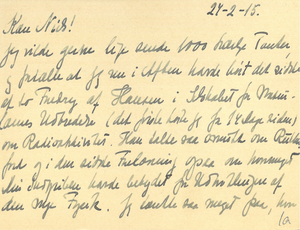 24-2-15.
Kære Niels!
Jeg vilde gerne lige sende 1000 kærlige Tanker,
og fortælle at jeg nu i Aften havde hørt det sidste
af to Foredrag af Hansen i Selskabet for
Udbredelse (det første hørte jeg for 14 Dage siden)
om Radioaktivitet. Han talte saa smukt om
ford og i den sidste Forelæsning ogsaa om hvormeget
din havde betydet for Udviklingen af
den nye Fysik. Jeg tænkte saa meget paa, hvor